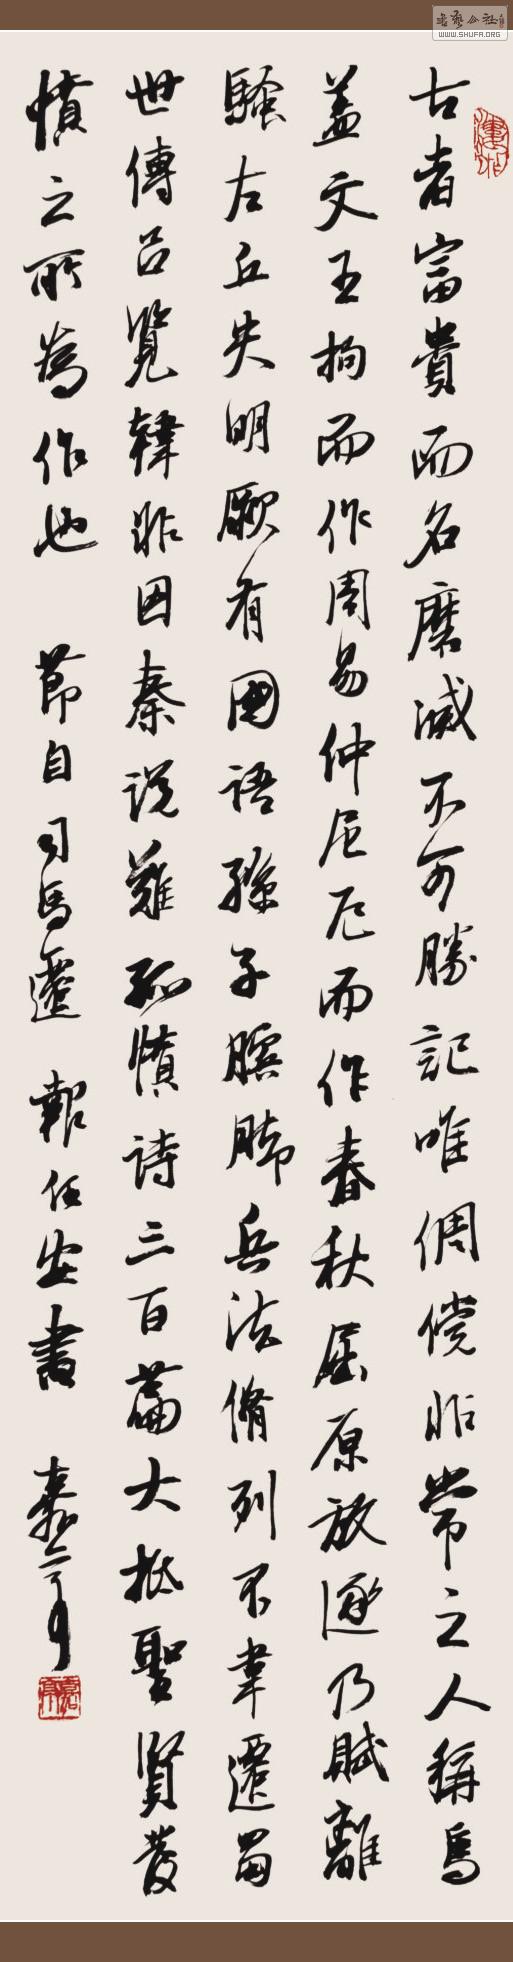 古者富貴而名磨滅不可勝記唯倜儻非常之人稱焉
蓋文王拘而作周易仲尼厄而作春秋屈原放逐乃賦離
騷左丘失明厥有國語孫子臏腳兵法脩列不韋遷蜀
世傳呂覽韓非囚秦說難孤憤詩三百篇大抵聖賢發
憤之所為作也 節自司馬遷 報任安書
WWW.SHUFA.ORG